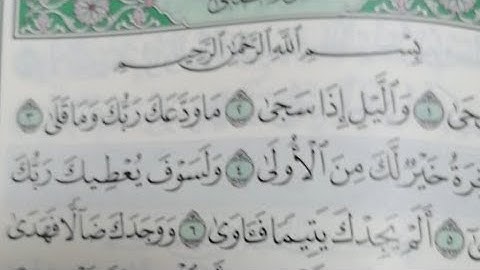 بِسْمِ ٱللَّهِ ٱلرَّحْمَٰنِ ٱلرَّحِيمِ
١ وَٱلَّيْلِ إِذَا سَجَىٰ ٢ مَا وَدَّعَكَ رَبُّكَ وَمَا قَلَىٰ ٣
خَيْرٌ لَّكَ مِنَ ٱلْأُولَىٰ ٤ وَلَسَوْفَ يُعْطِيكَ رَبُّكَ
٥ أَلَمْ يَجِدْكَ يَتِيمًا فَـَٔاوَىٰ ٦ وَوَجَدَكَ ضَآلًّا فَهَدَىٰ